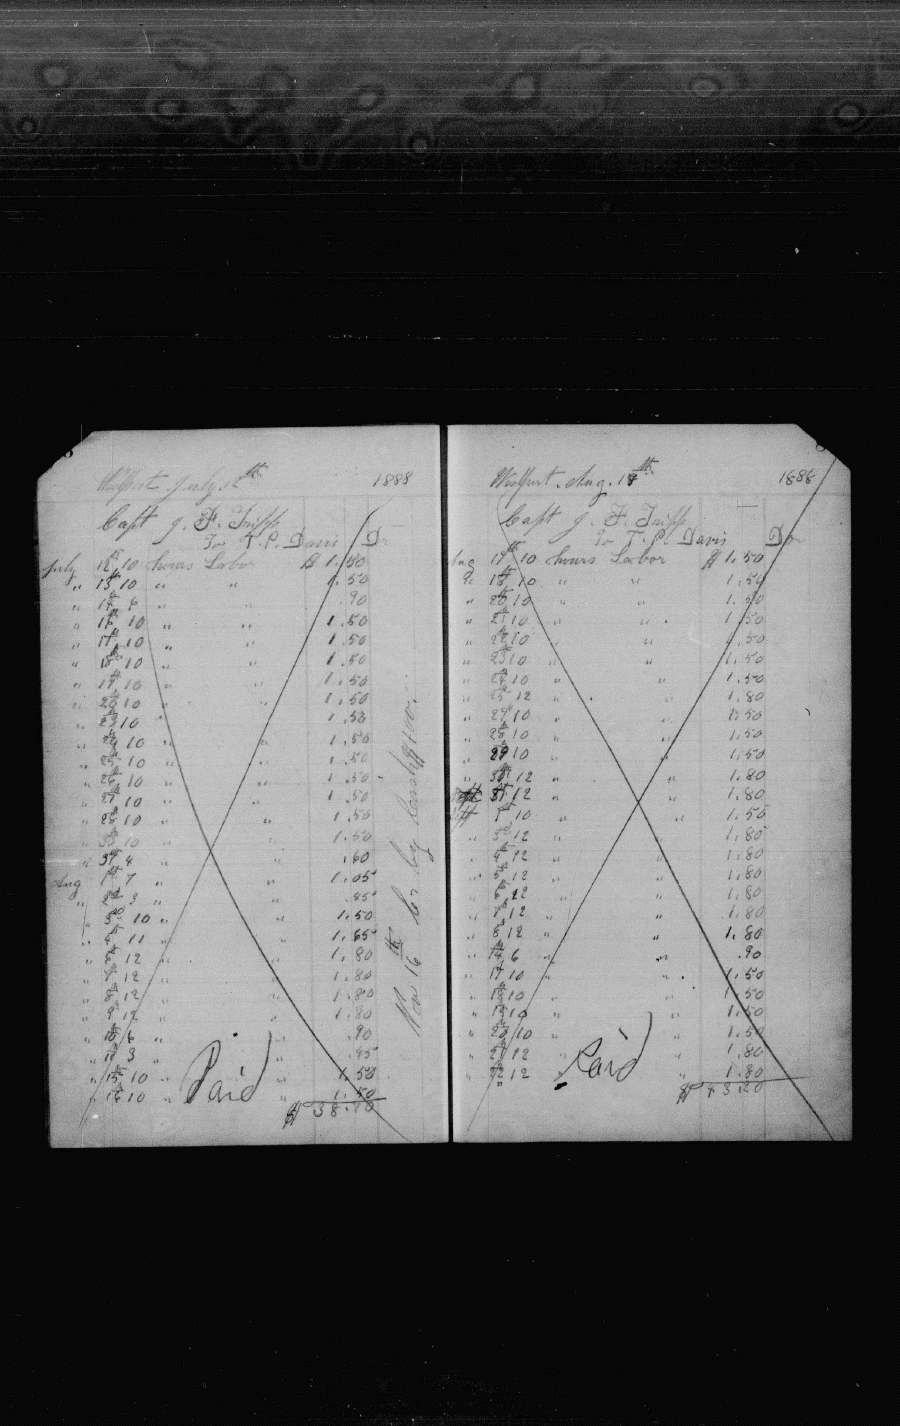 Westport July 12th 1888
Capt J. F. Tripp
To T. P. Davis Dr
July 12th 10 hours Labor $ 1.50
" 13th 10 " " 1.50
" 14th 6 " " .90
" 16th 10 " " 1.50
" 17th 10 " " 1.50
" 18th 10 " " 1.50
" 19th 10 " " 1.50
" 20th 10 " " 1.50
" 23th 10 " 1.50
" 24th 10 " " 1.50
" 25th 10 " " 1.50
" 26th 10 " " 1.50
" 27th 10 " " 1.50
" 28th 10 " " 1.50
" 30th 10 " " 1.50
" 31st 4 " " .60
Aug 1st 7 " " 1.05
" 2nd 3 " " .45
" 3d 10 " " 1.50
" 4th 11 " " 1.65
" 6th 12 " " 1.80
" 12 " " 1.80
" 8th 12 " " 1.80
" 9th 12 " " 1.80
" 10th 6 " " .90
" 11th 3 " " .45
" 15th 10 " " 1.50
" 16th 10 " " 1.50
$ 38.70
Paid
Nov 16th Cr by
Westport Aug. 17th 1888
Capt J. F. Tripp
To T. P. Davis Dr
Aug 17th 10 hours Labor $ 1.50
" 18th 10 " " 1.50
" 20th 10 " " 1.50
" 21st 10 " " 1.50
" 22d 10 " " 1.50
" 23d 10 " " 1.50
" 24th 10 " " 1.50
" 25th 12 " " 1.80
" 27th 10 " " 1.50
" 28th 10 " " 1.50
" 29th 10 " " 1.50
" 30th 12 " " 1.80
31st 12 " " 1.80
Sept 1st 10 " " 1.50
" 3d 12 " " 1.80
" 4th 12 " " 1.80
" 5th 12 " " 1.80
" 6th 12 " " 1.80
" 7th 12 " " 1.80
" 8th 12 " " 1.80
" 14th 6 " " .90
" 17th 10 " " 1.50
" 18th 10 " " 1.50
" 19th 10 " " 1.50
" 20th 10 " " 1.50
" 21st 12 " " 1.80
" 22d 12 " " 1.80
$ 43.20
Paid